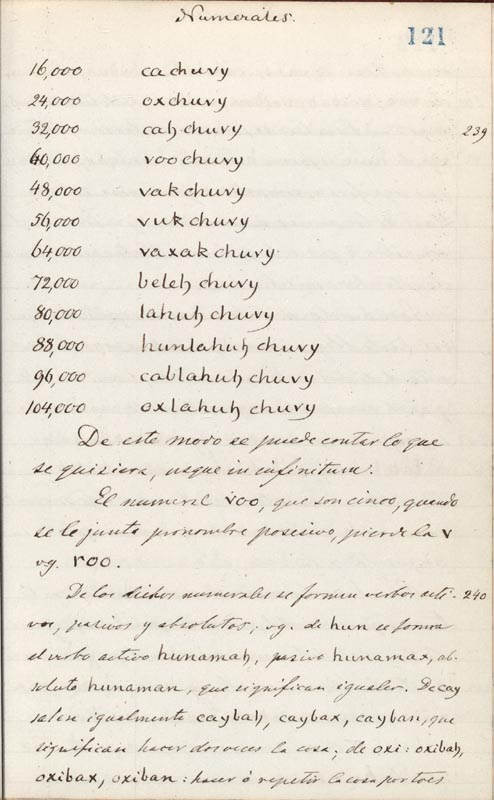 Numerales.
121
16,000 ca chuvy
24,000 ox chuvy
32,000 cah chuvy 239
40,000 voo chuvy
48,000 vak chuvy
56,000 vuk chuvy
64,000 vaxak chuvy
72,000 beleh chuvy
80,000 lahuh chuvy
88,000 hunlahuh chuvy
96,000 cablahuh chuvy
104,000 oxlahuh chuvy
De este modo se puede contar lo que
se quisiera, usque in infinitum.
El numeral voo, que son cinco, quando
se le junta pronombre posesivo, pierde la v
vg. roo.
De los dichos numerales se forman verbos acti- 240
vos, pasivos y absolutos; vg. de hun se forma
el verbo activo hunamah, pasivo hunamax, ab-
soluto hunaman, que significan igualar. De cay
salen igualmente caybah, caybax, cayban, que
significan hacer dos veces la cosa; de oxi: oxibah,
oxibax, oxiban: hacer ó repetir la cosa por tres